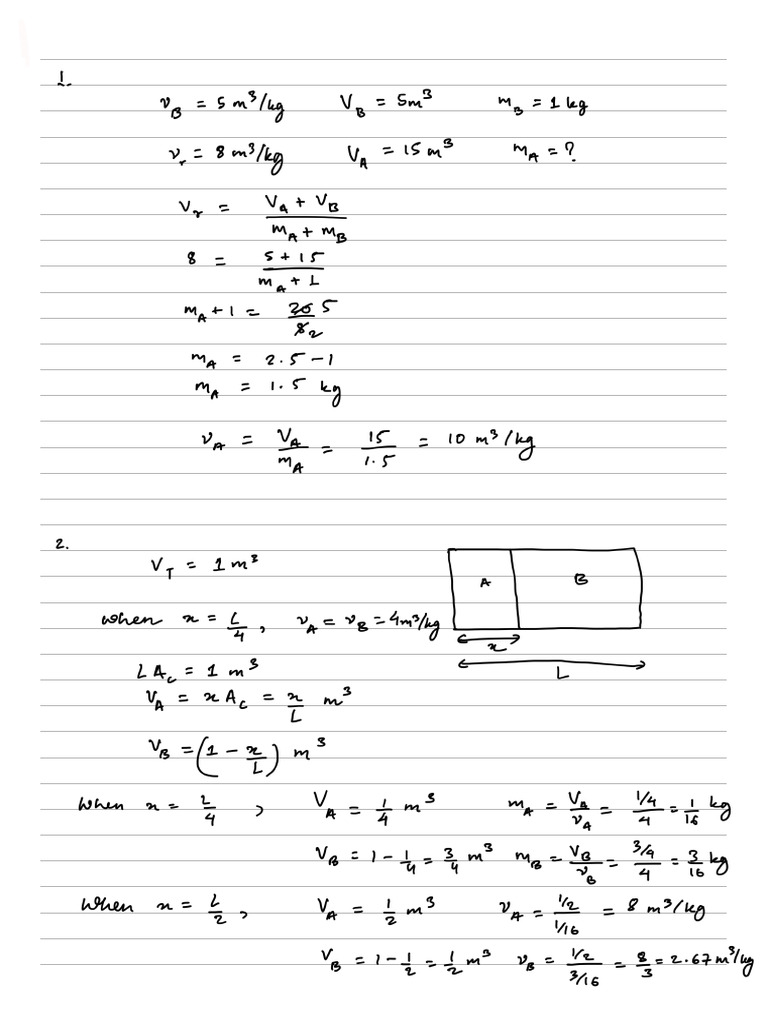 1.
v_B = 5 m³/kg V_B = 5m³ m_B = 1 kg
v_r = 8 m³/kg V_A = 15 m³ m_A = ?
V_r = (V_A + V_B)/(m_A + m_B)
8 = (5 + 15)/(m_A + 1)
m_A + 1 = 20 5/8 2
m_A = 2.5 - 1
m_A = 1.5 kg
v_A = V_A/m_A = 15/1.5 = 10 m³/kg
2.
V_T = 1 m³
when x = L/4, v_A = v_B = 4m³/kg
A B
x
L
L A_c = 1 m³
V_A = x A_c = x/L m³
V_B = (1 - x/L) m³
When x = L/4, V_A = 1/4 m³ m_A = V_A/v_A = (1/4)/4 = 1/16 kg
V_B = 1 - 1/4 = 3/4 m³ m_B = V_B/v_B = (3/4)/4 = 3/16 kg
When x = L/2, V_A = 1/2 m³ v_A = (1/2)/(1/16) = 8 m³/kg
V_B = 1 - 1/2 = 1/2 m³ v_B = (1/2)/(3/16) = 8/3 = 2.67 m³/kg